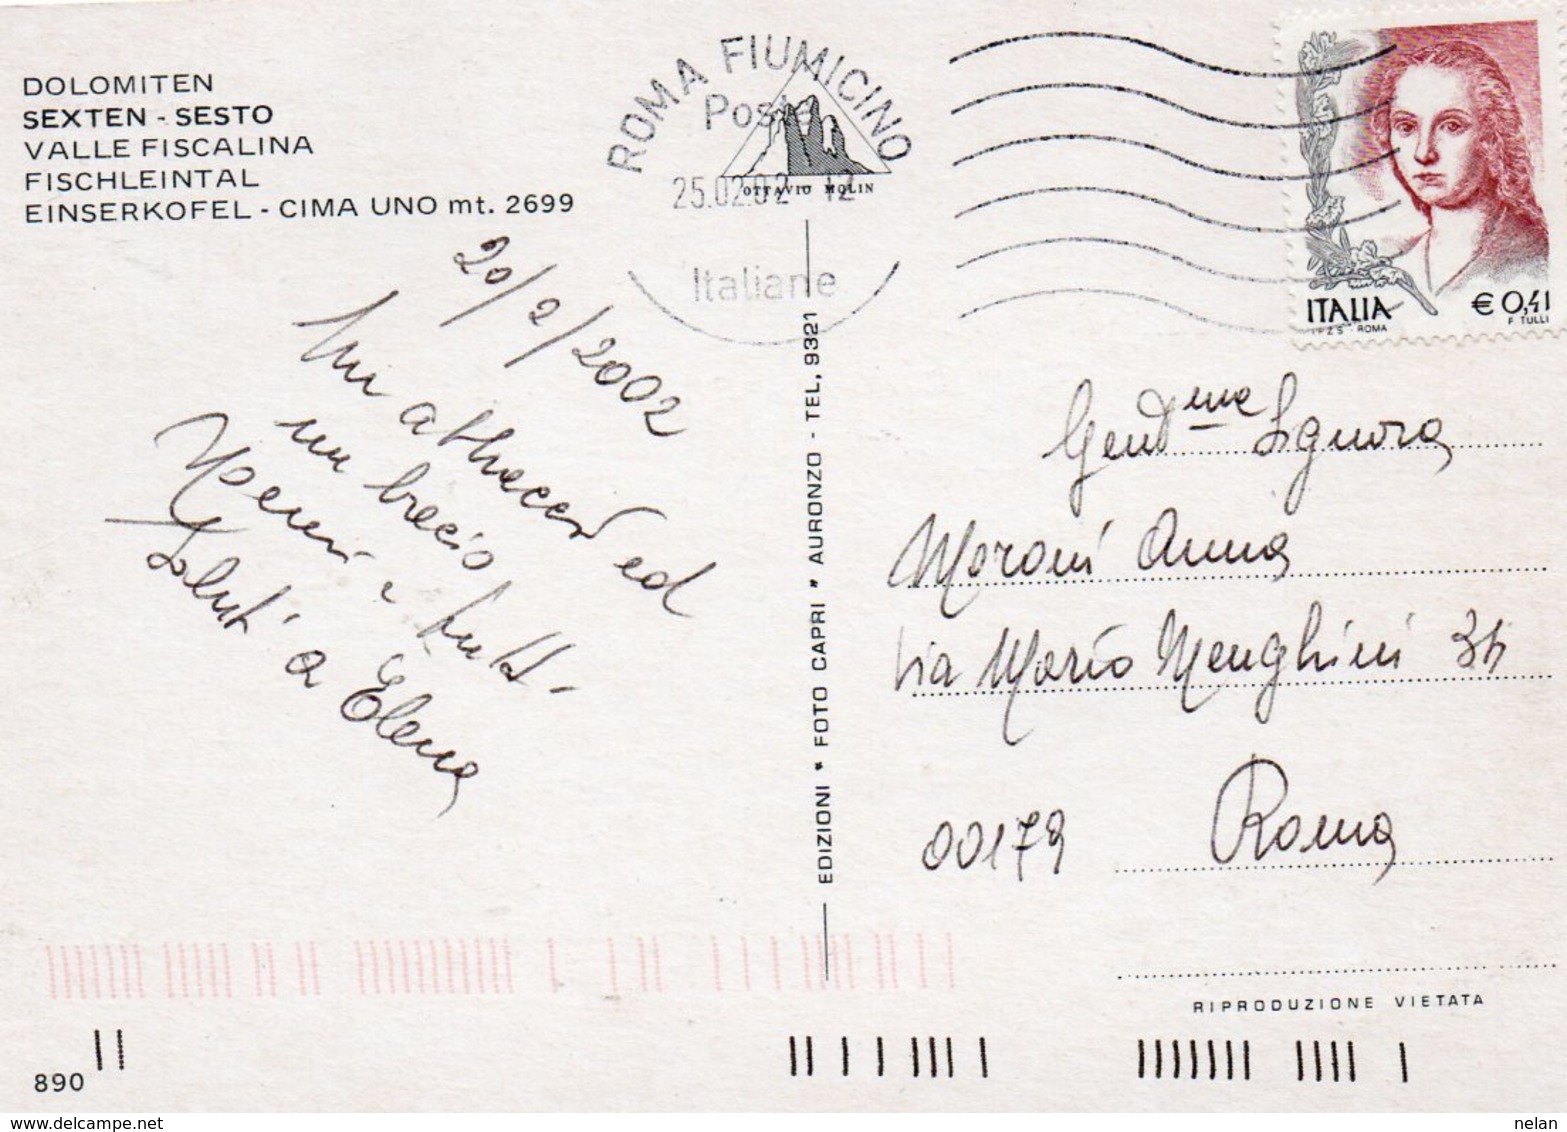 DOLOMITEN
SEXTEN - SESTO
VALLE FISCALINA
FISCHLEINTAL
EINSERKOFEL - CIMA UNO mt. 2699
ROMA FIUMICINO
Poste
25.02.02 - 12
Italiane
OTTAVIO MOLIN
ITALIA
€ 0,41
I.P.Z.S. - ROMA
F. TULLI
20/2/2002
Un abbraccio ed
un bacio
a tutti
Saluti a Elena
EDIZIONI * FOTO CAPRI * AURONZO - TEL. 9321
Gent.ma Signora
Moroni Anna
Via Mario Menghini
00179 Roma
RIPRODUZIONE VIETATA
890
delcampe.net
nelan